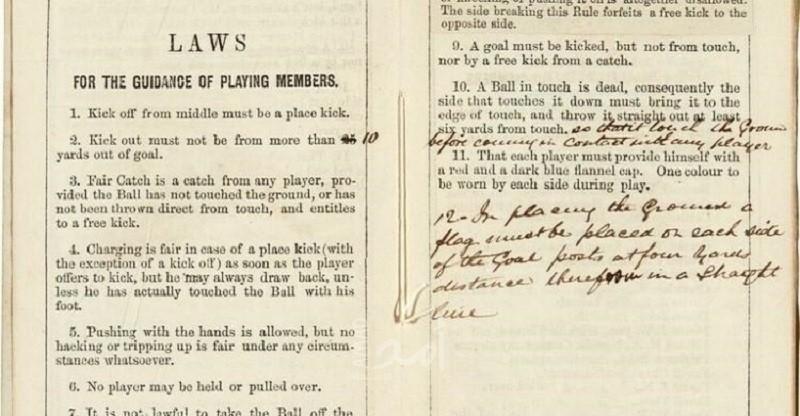 LAWS
FOR THE GUIDANCE OF PLAYING MEMBERS.
1. Kick off from middle must be a place kick.
2. Kick out must not be from more than 25 10
yards out of goal.
3. Fair Catch is a catch from any player, pro-
vided the Ball has not touched the ground, or has
not been thrown direct from touch, and entitles
to a free kick.
4. Charging is fair in case of a place kick (with
the exception of a kick off) as soon as the player
offers to kick, but he may always draw back, un-
less he has actually touched the Ball with his
foot.
5. Pushing with the hands is allowed, but no
hacking or tripping up is fair under any circum-
stances whatsoever.
6. No player may be held or pulled over.
7. It is not lawful to take the Ball off the
or knocking or pushing it on is altogether disallowed.
The side breaking this Rule forfeits a free kick to the
opposite side.
9. A goal must be kicked, but not from touch,
nor by a free kick from a catch.
10. A Ball in touch is dead, consequently the
side that touches it down must bring it to the
edge of touch, and throw it straight out at least
six yards from touch. so that it touch the Ground
before coming in contact with any player
11. That each player must provide himself with
a red and a dark blue flannel cap. One colour to
be worn by each side during play.
12. In placing the Ground a
flag must be placed on each side
of the Goal posts at four Yards
distance therefrom in a Straight
line